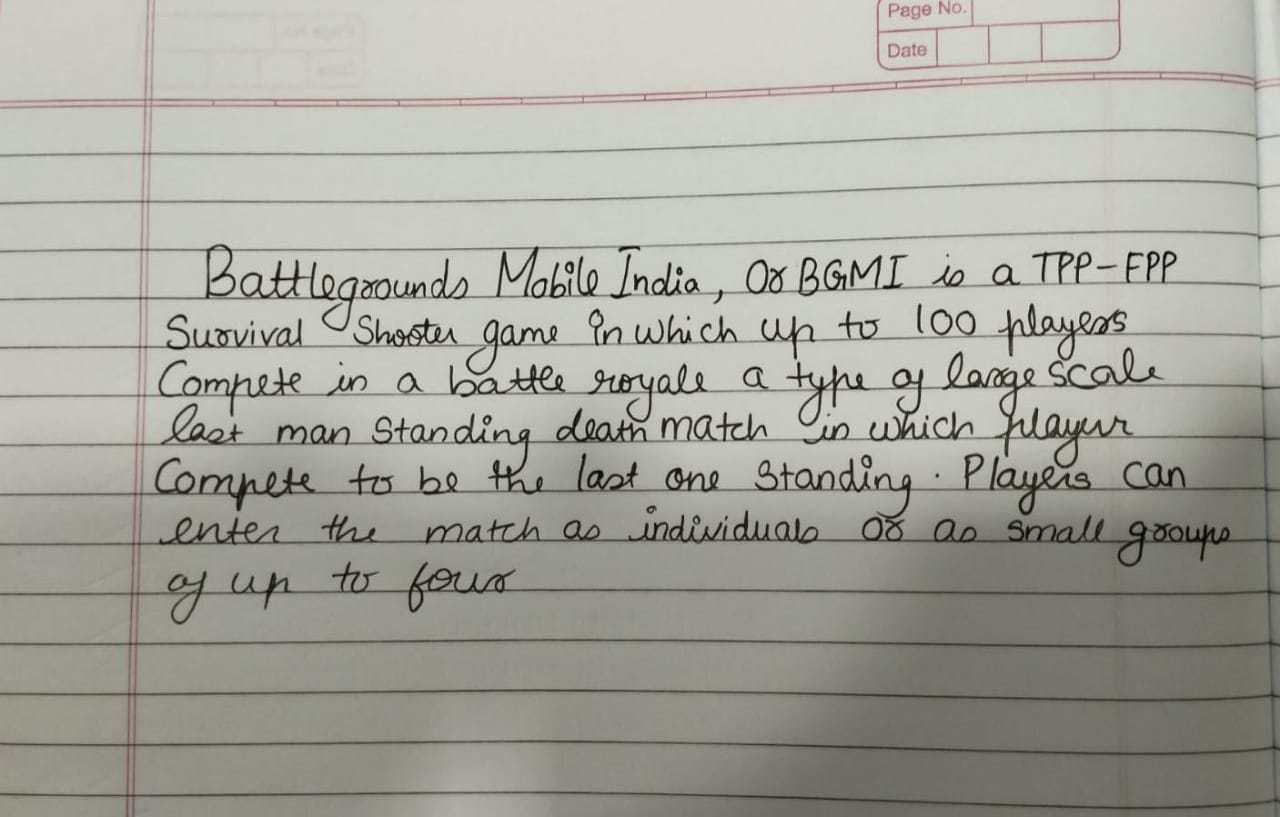 Page No.
Date
Battlegrounds Mobile India, Or BGMI is a TPP-FPP
Survival Shooter game in which up to 100 players
Compete in a battle royale a type of large scale
last man Standing death match in which player
Compete to be the last one Standing. Players can
enter the match as individuals or as small groups
of up to four